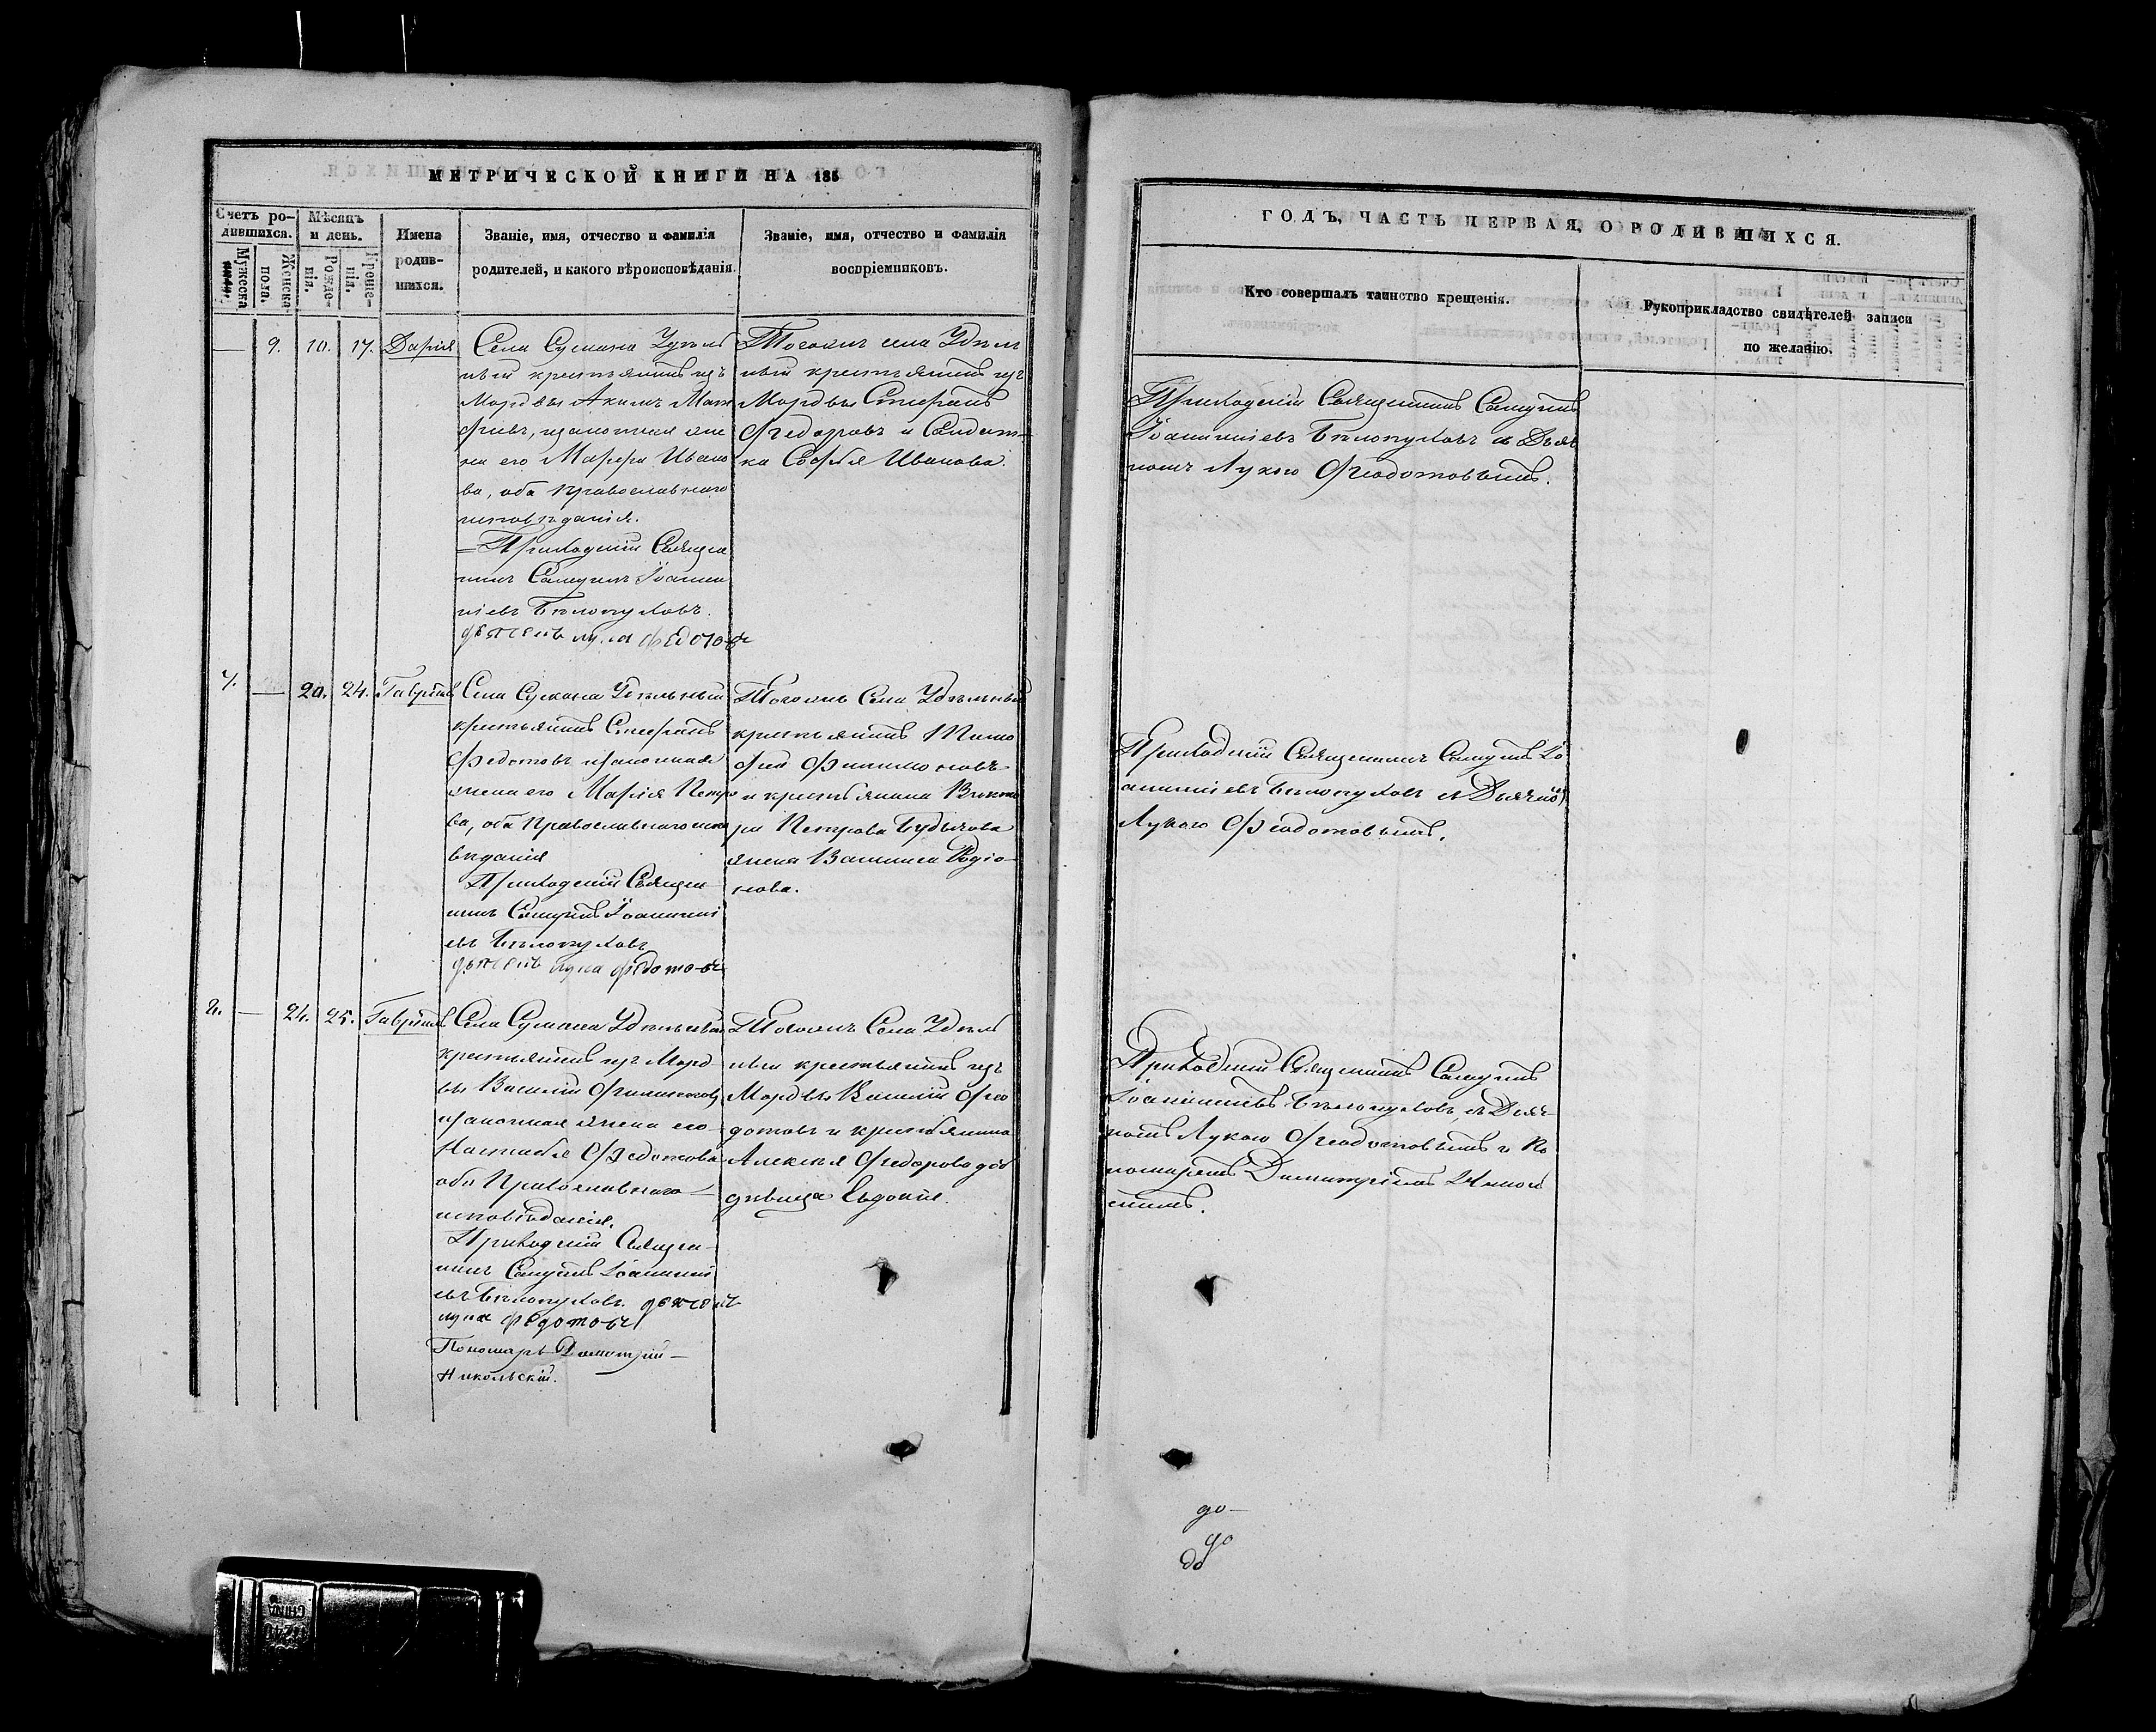 МЕТРИЧЕСКОЙ КНИГИ НА 185
Счетъ ро-
дившихся.
Мужеска
пола.
Женска
пола.
Мѣсяцъ
и день.
Рожде-
нія.
Креще-
нія.
Имена
родив-
шихся.
Званіе, имя, отчество и фамилія
родителей, и какого вѣроисповѣданія.
Званіе, имя, отчество и фамилія
воспріемниковъ.
— 9. 10. 17. Дарія
Села Сускана Удѣль
ный крестьянинъ изъ
Мордвы Акимъ
законная же
на его Марѳа Ивано
ва, оба православнаго
исповѣданія.
Приходскій Священ
никъ Самуилъ Іоанни
кіевъ Бѣлопуховъ.
дьячекъ лука федотовъ
Тогожъ села Удѣль
ный крестьянинъ изъ
Мордвы Стефанъ
Ѳедоровъ и Солдат-
ка Софья Иванова.
7. — 20. 24. Гавріилъ
Села Сускана Удѣльный
крестьянинъ Стефанъ
Федотовъ и законная
жена его Марія Петро
ва, оба Православнаго испо
вѣданія
Приходскій Священ
никъ Самуилъ Іоанники
евъ Бѣлопуховъ
дьячекъ лука федотовъ
Тогожъ Села Удѣльный
крестьянинъ Тимо
фей Филимоновъ
и крестьянина Викто
ра Петрова
жена Василиса Родіо-
нова.
8. — 24. 25. Гавріилъ
Села Сускана Удѣльный
крестьянинъ изъ Морд-
вы Василій Филимоновъ
и законная жена его
Настасья Федотова
оба Православнаго
исповѣданія.
Приходскій Священ-
никъ Самуилъ Іоанники
евъ Бѣлопуховъ. дьячекъ
лука федотовъ
Пономарь Димитрій
Никольскій.
Тогожъ Села Удѣль
ный крестьянинъ изъ
Мордвы Василій Ѳео
дотовъ и крестьянина
Алексѣя Ѳедорова до
дѣвица Евдокія.
ГОДЪ, ЧАСТЬ ПЕРВАЯ, О РОДИВШИХСЯ.
Кто совершалъ таинство крещенія.
Рукоприкладство свидѣтелей записи
по желанію.
Приходскій Священникъ Самуилъ
Іоанникіевъ Бѣлопуховъ съ Дьяч
комъ Лукою Ѳеодотовымъ.
Приходскій Священникъ Самуилъ Іо
анникіевъ Бѣлопуховъ съ Дьячкомъ
Лукою Ѳеодотовымъ.
Приходскій Священникъ Самуилъ
Іоанникіевъ Бѣлопуховъ, съ Дьяч-
комъ Лукою Ѳеодотовымъ и По
номаремъ Димитріемъ Николь
скимъ.
до-
до
до